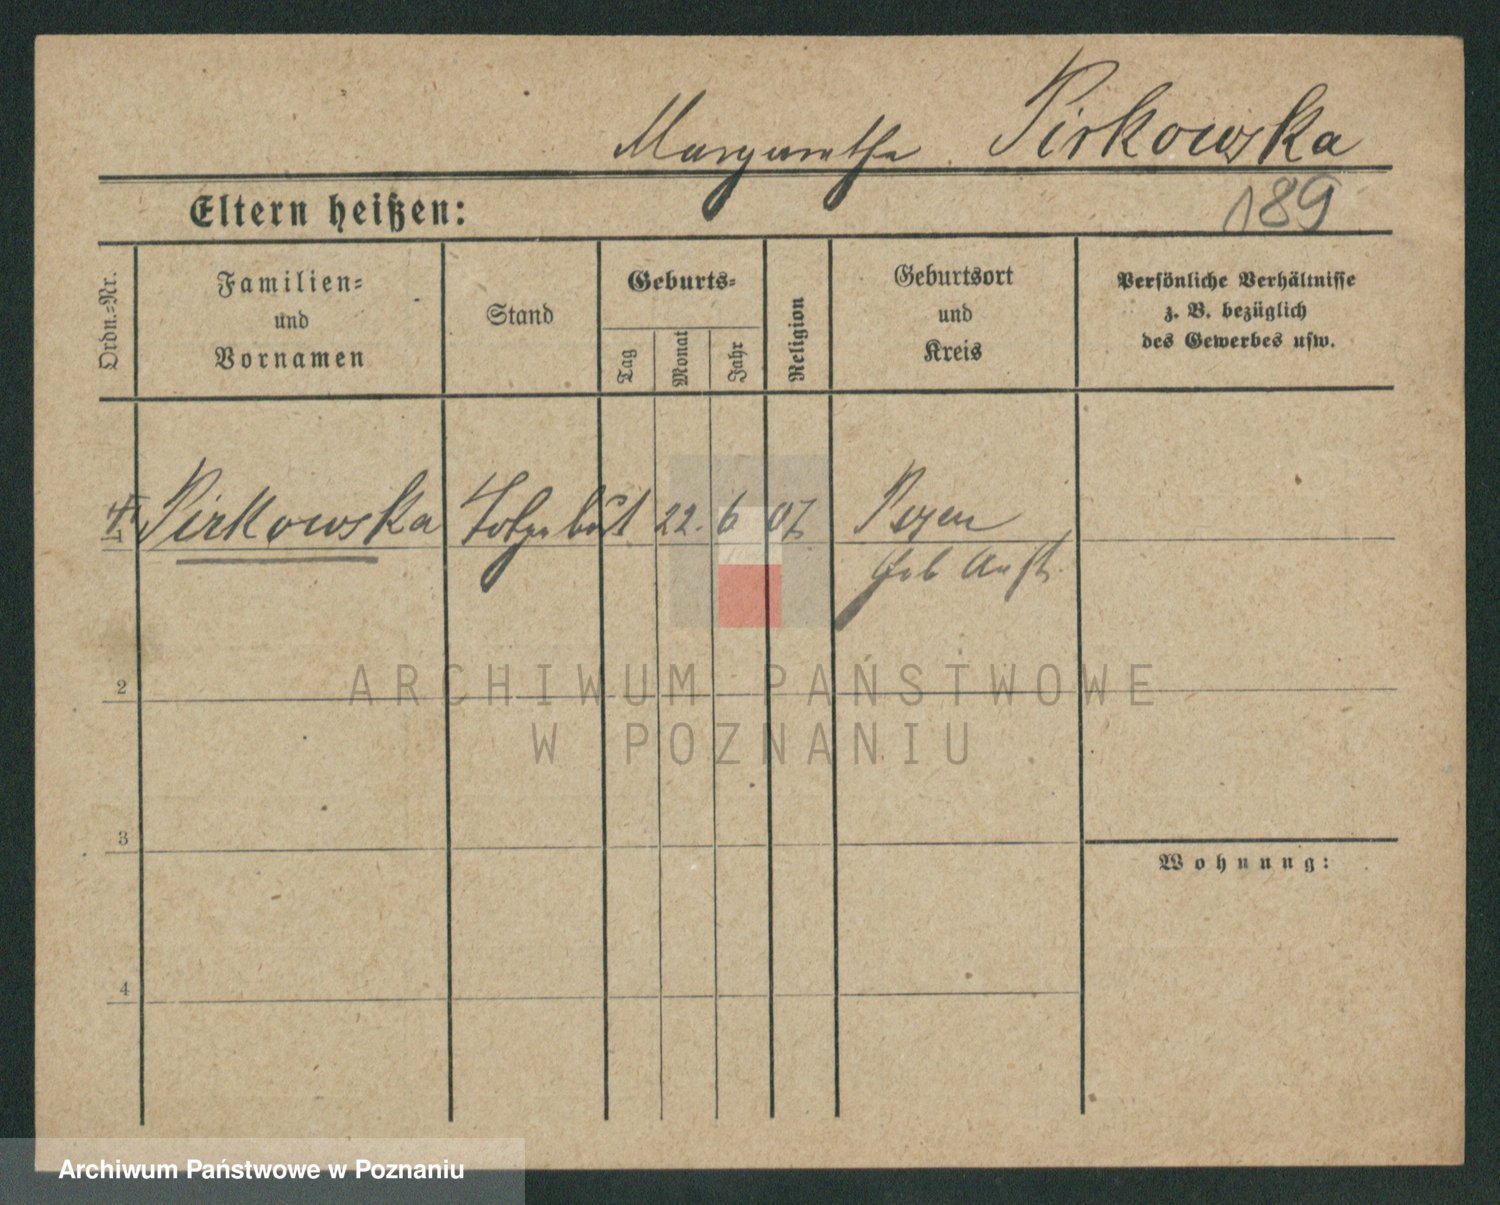 Margarethe Pirkowska
Eltern heißen: 189
Ordn.=Nr.
Familien=
und
Vornamen
Stand
Geburts=
Tag
Monat
Jahr
Religion
Geburtsort
und
Kreis
Persönliche Verhältnisse
z. B. bezüglich
des Gewerbes usw.
Pirkowska 22. 6 07 Posen
Geb Anst.
2
3
4
Wohnung:
ARCHIWUM PAŃSTWOWE
W POZNANIU
Archiwum Państwowe w Poznaniu